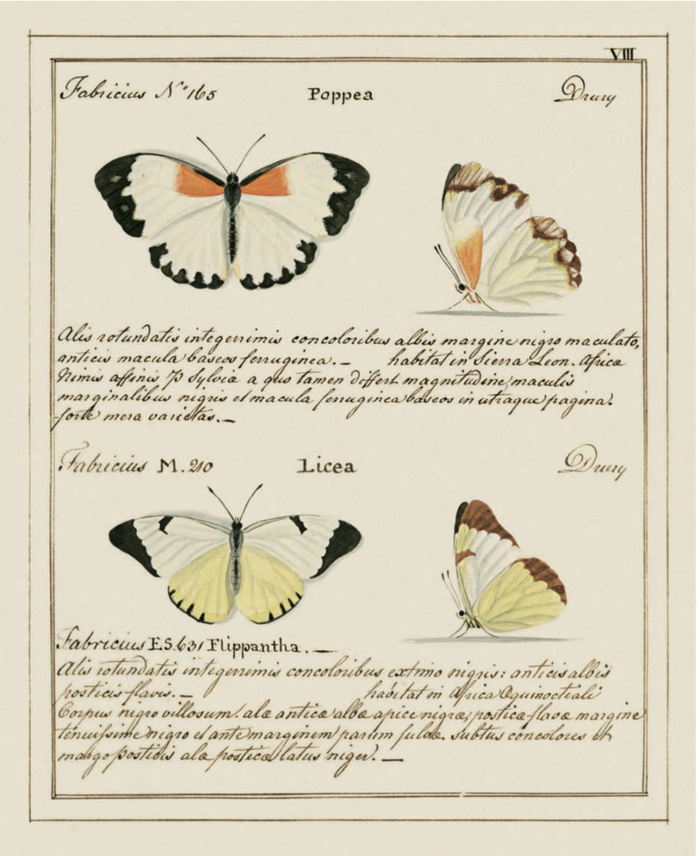 VIII
Fabricius Nº 165 Poppea Drury
Alis rotundatis integerrimis concoloribus albis margine nigro maculato,
anticis macula baseos ferruginea. _ habitat in Sierra Leon. Africa
Nimis affinis P. Sylvia a qua tamen differt magnitudine, maculis
marginalibus nigris et macula ferruginea baseos in utraque pagina.
forte mera varietas. _
Fabricius M. 210 Licea Drury
Fabricius E.S. 631 Flippantha. _
Alis rotundatis integerrimis concoloribus extimo nigris: anticis albis
posticis flavis. _ habitat in Africa Æquinoctiali
Corpus nigro villosum. alæ anticæ albæ apice nigræ; posticæ flavæ margine
tenuissime nigro et ante marginem parum fulvæ. subtus concolores et
margo posticis alæ posticæ latus niger. _